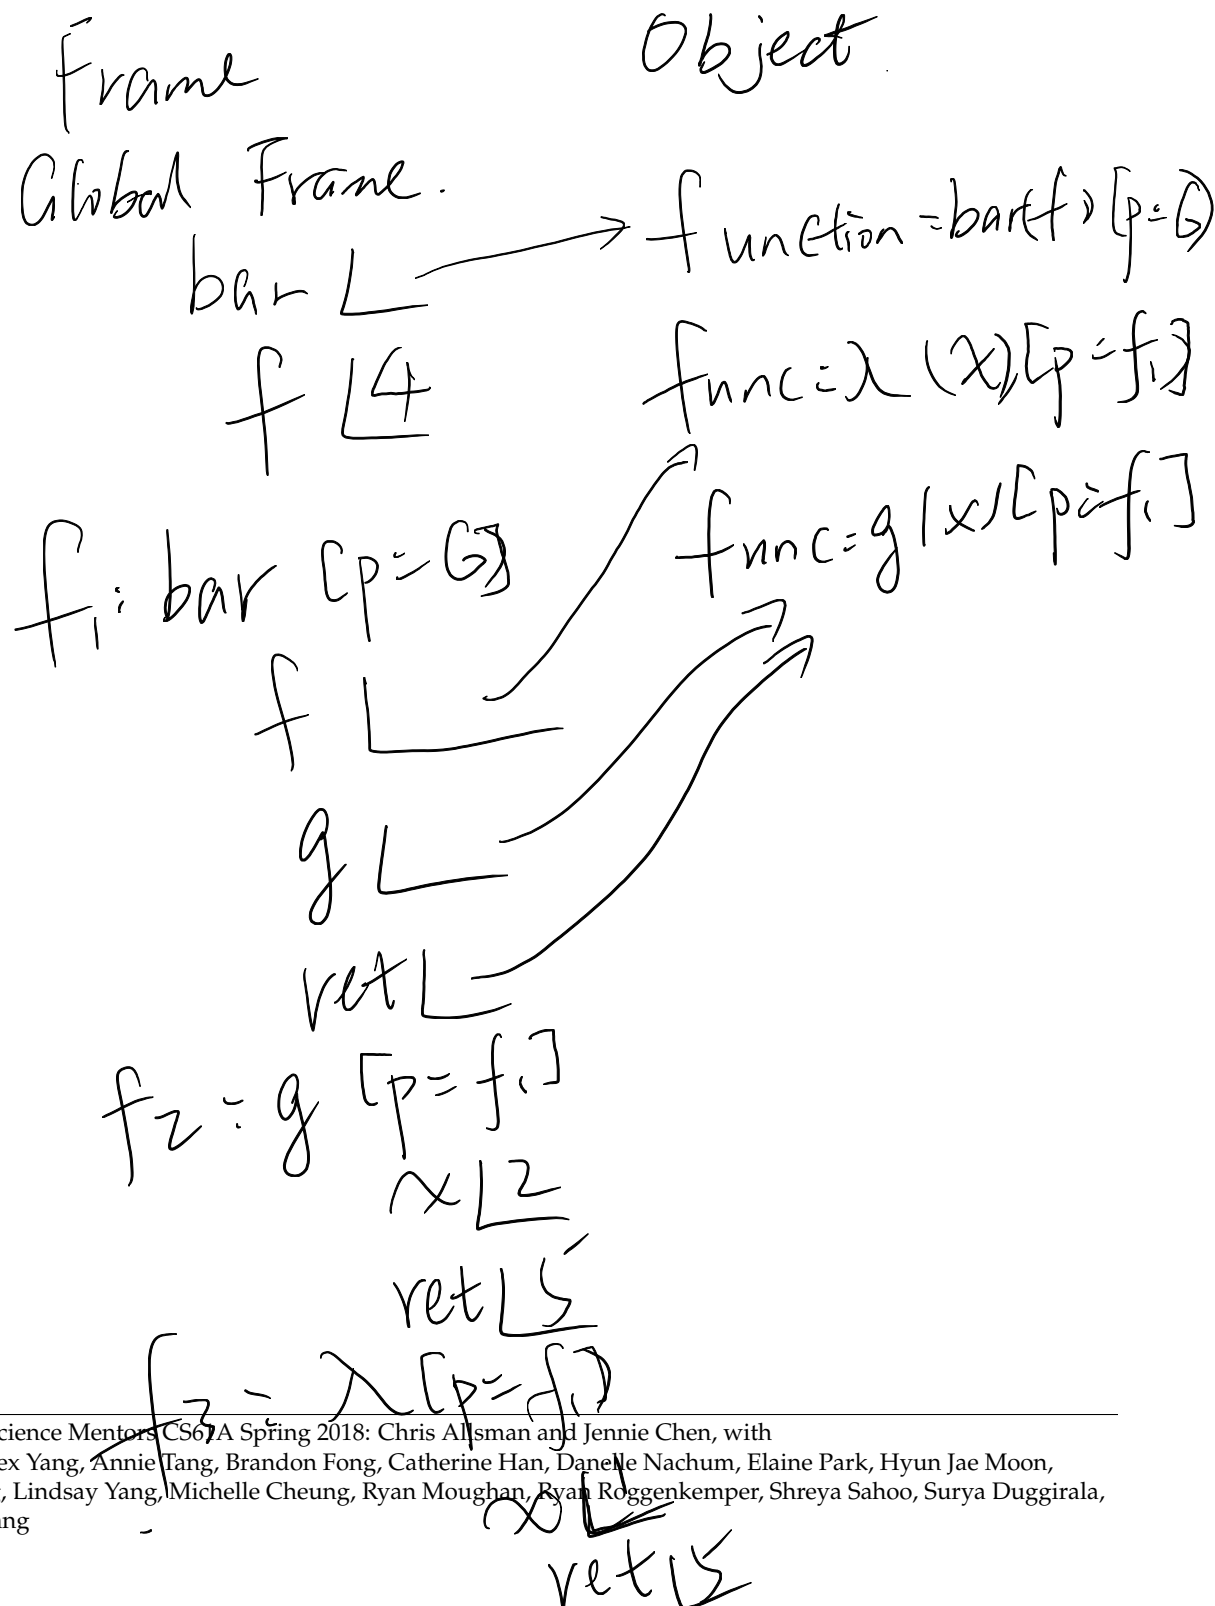 Frame Object
Global Frame.
bar function=bar(f) [p=G]
f 4 func=λ(x)[p=f1]
func=g(x)[p=f1]
f1: bar [p=G]
f
g
ret
f2: g [p=f1]
x 2
ret 5
f3: λ [p=f1]
cience Mentors CS61A Spring 2018: Chris Allsman and Jennie Chen, with
ex Yang, Annie Tang, Brandon Fong, Catherine Han, Danelle Nachum, Elaine Park, Hyun Jae Moon,
, Lindsay Yang, Michelle Cheung, Ryan Moughan, Ryan Roggenkemper, Shreya Sahoo, Surya Duggirala,
ang
x
ret 5